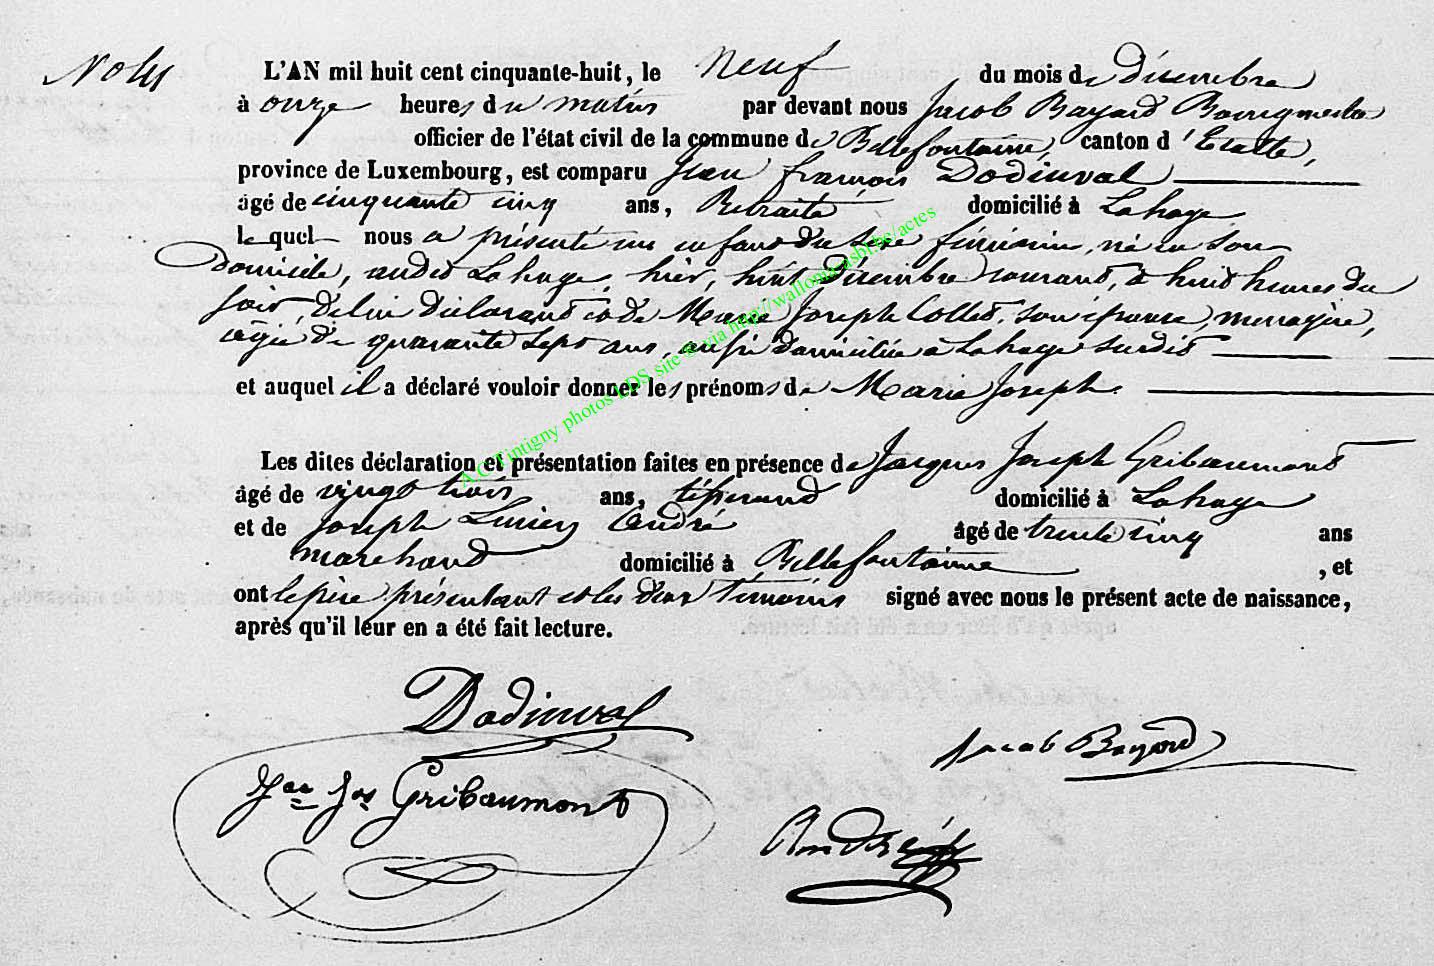 L'AN mil huit cent cinquante-huit, le Neuf du mois de Décembre
à onze heures du matin par devant nous Jacob Bayard Bourgmestre
officier de l'état civil de la commune de Bellefontaine, canton d'Etalle,
province de Luxembourg, est comparu Jean françois Dodinval
âgé de cinquante cinq ans, Retraité domicilié à Lahage
lequel nous a présenté un enfant du sexe féminin, né en son
domicile, audit Lahage, hier, huit Décembre courant, à huit heures du
soir, de lui déclarant et de Marie Joseph Collet, son épouse, ménagère,
âgée de quarante sept ans, aussi domiciliée à Lahage susdit
et auquel il a déclaré vouloir donner les prénoms de Marie Joseph.
Les dites déclaration et présentation faites en présence de Jacques Joseph Gribaumont
âgé de vingt trois ans, tisserand domicilié à Lahage
et de Joseph Lucien André âgé de trente cinq ans
marchand domicilié à Bellefontaine, et
ont le père présentant et les deux témoins signé avec nous le présent acte de naissance,
après qu'il leur en a été fait lecture.
Dodinval
Jacob Bayard
Jos Gribaumont
André
A.C. Tintigny photos LDS site @ via http://walloma-asbl.be/actes